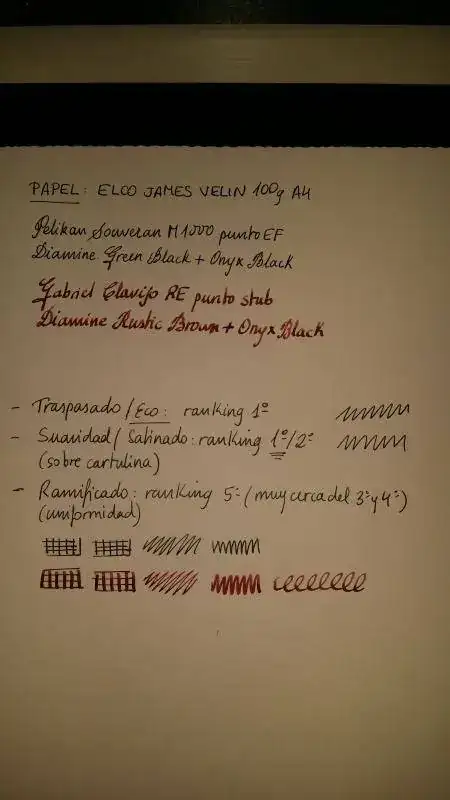 PAPEL: ELCO JAMES VELIN 100g A4
Pelikan Souveran M1000 punto EF
Diamine Green Black + Onyx Black
Gabriel Clavijo RE punto stub
Diamine Rustic Brown + Onyx Black
- Traspasado/Eco: ranking 1º
- Suavidad/Satinado: ranking 1º/2º
(sobre cartulina)
- Ramificado: ranking 5º (muy cerca del 3º y 4º)
(uniformidad)